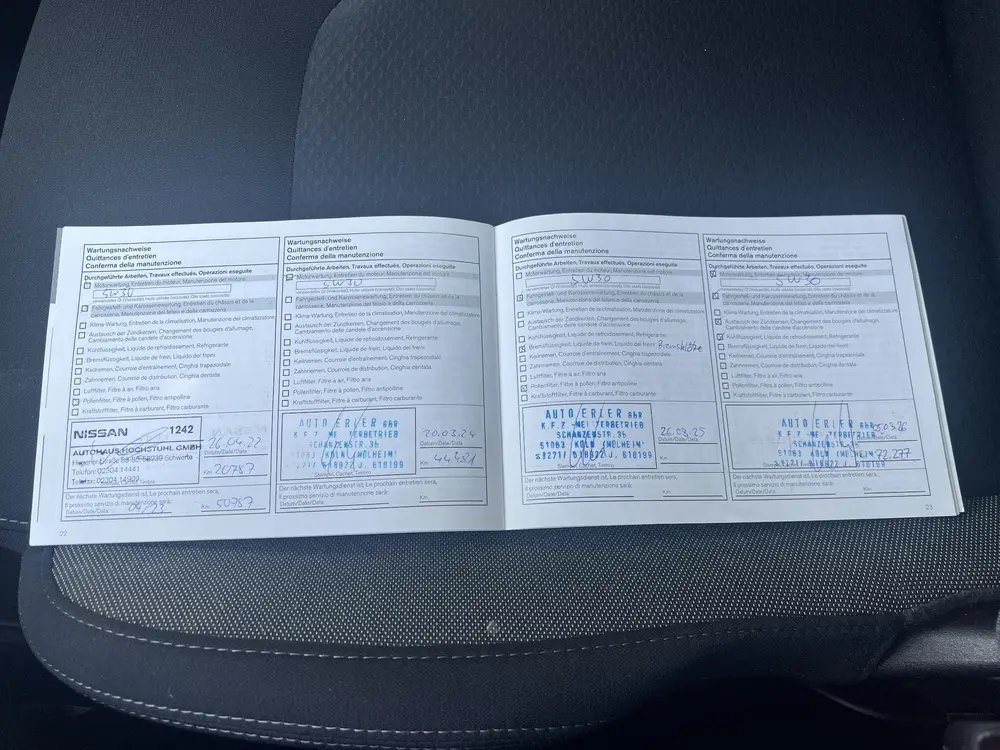 Wartungsnachweise
Quittances d'entretien
Conferma della manutenzione
Durchgeführte Arbeiten, Travaux effectués, Operazioni eseguite
Motorwartung, Entretien du moteur, Manutenzione del motore
5W30
Fahrgestell- und Karosseriewartung, Entretien du châssis et de la
carrosserie, Manutenzione del telaio e della carrozzeria
Klima-Wartung, Entretien de la climatisation, Manutenzione del climatizzatore
Austausch der Zündkerzen, Changement des bougies d'allumage,
Cambiamento delle candele d'accensione
Kühlflüssigkeit, Liquide de refroidissement, Refrigerante
Bremsflüssigkeit, Liquide de frein, Liquido dei freni
Keilriemen, Courroie d'entraînement, Cinghia trapezoidale
Zahnriemen, Courroie de distribution, Cinghia dentata
Luftfilter, Filtre à air, Filtro aria
Pollenfilter, Filtre à pollen, Filtro antipolline
Kraftstofffilter, Filtre à carburant, Filtro carburante
NISSAN 1242
AUTOHAUS HOCHSTUHL GMBH
Hagener Straße 58239 Schwerte
Telefon: 02304 14441
Telefax: 02304 14907
26.04.22
Datum/Date/Data
Km 20787
Der nächste Wartungsdienst ist, Le prochain entretien sera,
Il prossimo servizio di manutenzione sarà:
04/23
Datum/Date/Data
Km 50787
22
Wartungsnachweise
Quittances d'entretien
Conferma della manutenzione
Durchgeführte Arbeiten, Travaux effectués, Operazioni eseguite
Motorwartung, Entretien du moteur, Manutenzione del motore
5W30
Fahrgestell- und Karosseriewartung, Entretien du châssis et de la
carrosserie, Manutenzione del telaio e della carrozzeria
Klima-Wartung, Entretien de la climatisation, Manutenzione del climatizzatore
Austausch der Zündkerzen, Changement des bougies d'allumage,
Cambiamento delle candele d'accensione
Kühlflüssigkeit, Liquide de refroidissement, Refrigerante
Bremsflüssigkeit, Liquide de frein, Liquido dei freni
Keilriemen, Courroie d'entraînement, Cinghia trapezoidale
Zahnriemen, Courroie de distribution, Cinghia dentata
Luftfilter, Filtre à air, Filtro aria
Pollenfilter, Filtre à pollen, Filtro antipolline
Kraftstofffilter, Filtre à carburant, Filtro carburante
AUTO ERLER
SCHANZENSTR. 36
51063 KÖLN (MÜLHEIM)
610199
Stempel, Cachet, Timbro
20.03.24
Datum/Date/Data
Km
Der nächste Wartungsdienst ist, Le prochain entretien sera,
Il prossimo servizio di manutenzione sarà:
Datum/Date/Data
Km
Wartungsnachweise
Quittances d'entretien
Conferma della manutenzione
Durchgeführte Arbeiten, Travaux effectués, Operazioni eseguite
Motorwartung, Entretien du moteur, Manutenzione del motore
5W30
Fahrgestell- und Karosseriewartung, Entretien du châssis et de la
carrosserie, Manutenzione del telaio e della carrozzeria
Klima-Wartung, Entretien de la climatisation, Manutenzione del climatizzatore
Austausch der Zündkerzen, Changement des bougies d'allumage,
Cambiamento delle candele d'accensione
Kühlflüssigkeit, Liquide de refroidissement, Refrigerante
Bremsflüssigkeit, Liquide de frein, Liquido dei freni
Keilriemen, Courroie d'entraînement, Cinghia trapezoidale
Zahnriemen, Courroie de distribution, Cinghia dentata
Luftfilter, Filtre à air, Filtro aria
Pollenfilter, Filtre à pollen, Filtro antipolline
Kraftstofffilter, Filtre à carburant, Filtro carburante
AUTO ERLER GbR
SCHANZENSTR. 36
51063 KÖLN (MÜLHEIM)
610199
Stempel, Cachet, Timbro
26.03.25
Datum/Date/Data
Km
Der nächste Wartungsdienst ist, Le prochain entretien sera,
Il prossimo servizio di manutenzione sarà:
Datum/Date/Data
Km
Wartungsnachweise
Quittances d'entretien
Conferma della manutenzione
Durchgeführte Arbeiten, Travaux effectués, Operazioni eseguite
Motorwartung, Entretien du moteur, Manutenzione del motore
5W30
Fahrgestell- und Karosseriewartung, Entretien du châssis et de la
carrosserie, Manutenzione del telaio e della carrozzeria
Klima-Wartung, Entretien de la climatisation, Manutenzione del climatizzatore
Austausch der Zündkerzen, Changement des bougies d'allumage,
Cambiamento delle candele d'accensione
Kühlflüssigkeit, Liquide de refroidissement, Refrigerante
Bremsflüssigkeit, Liquide de frein, Liquido dei freni
Keilriemen, Courroie d'entraînement, Cinghia trapezoidale
Zahnriemen, Courroie de distribution, Cinghia dentata
Luftfilter, Filtre à air, Filtro aria
Pollenfilter, Filtre à pollen, Filtro antipolline
Kraftstofffilter, Filtre à carburant, Filtro carburante
AUTO ERLER GbR
SCHANZENSTR. 36
51063 KÖLN (MÜLHEIM)
610199
Datum/Date/Data
72.277
Der nächste Wartungsdienst ist, Le prochain entretien sera,
Il prossimo servizio di manutenzione sarà:
Datum/Date/Data
Km
23